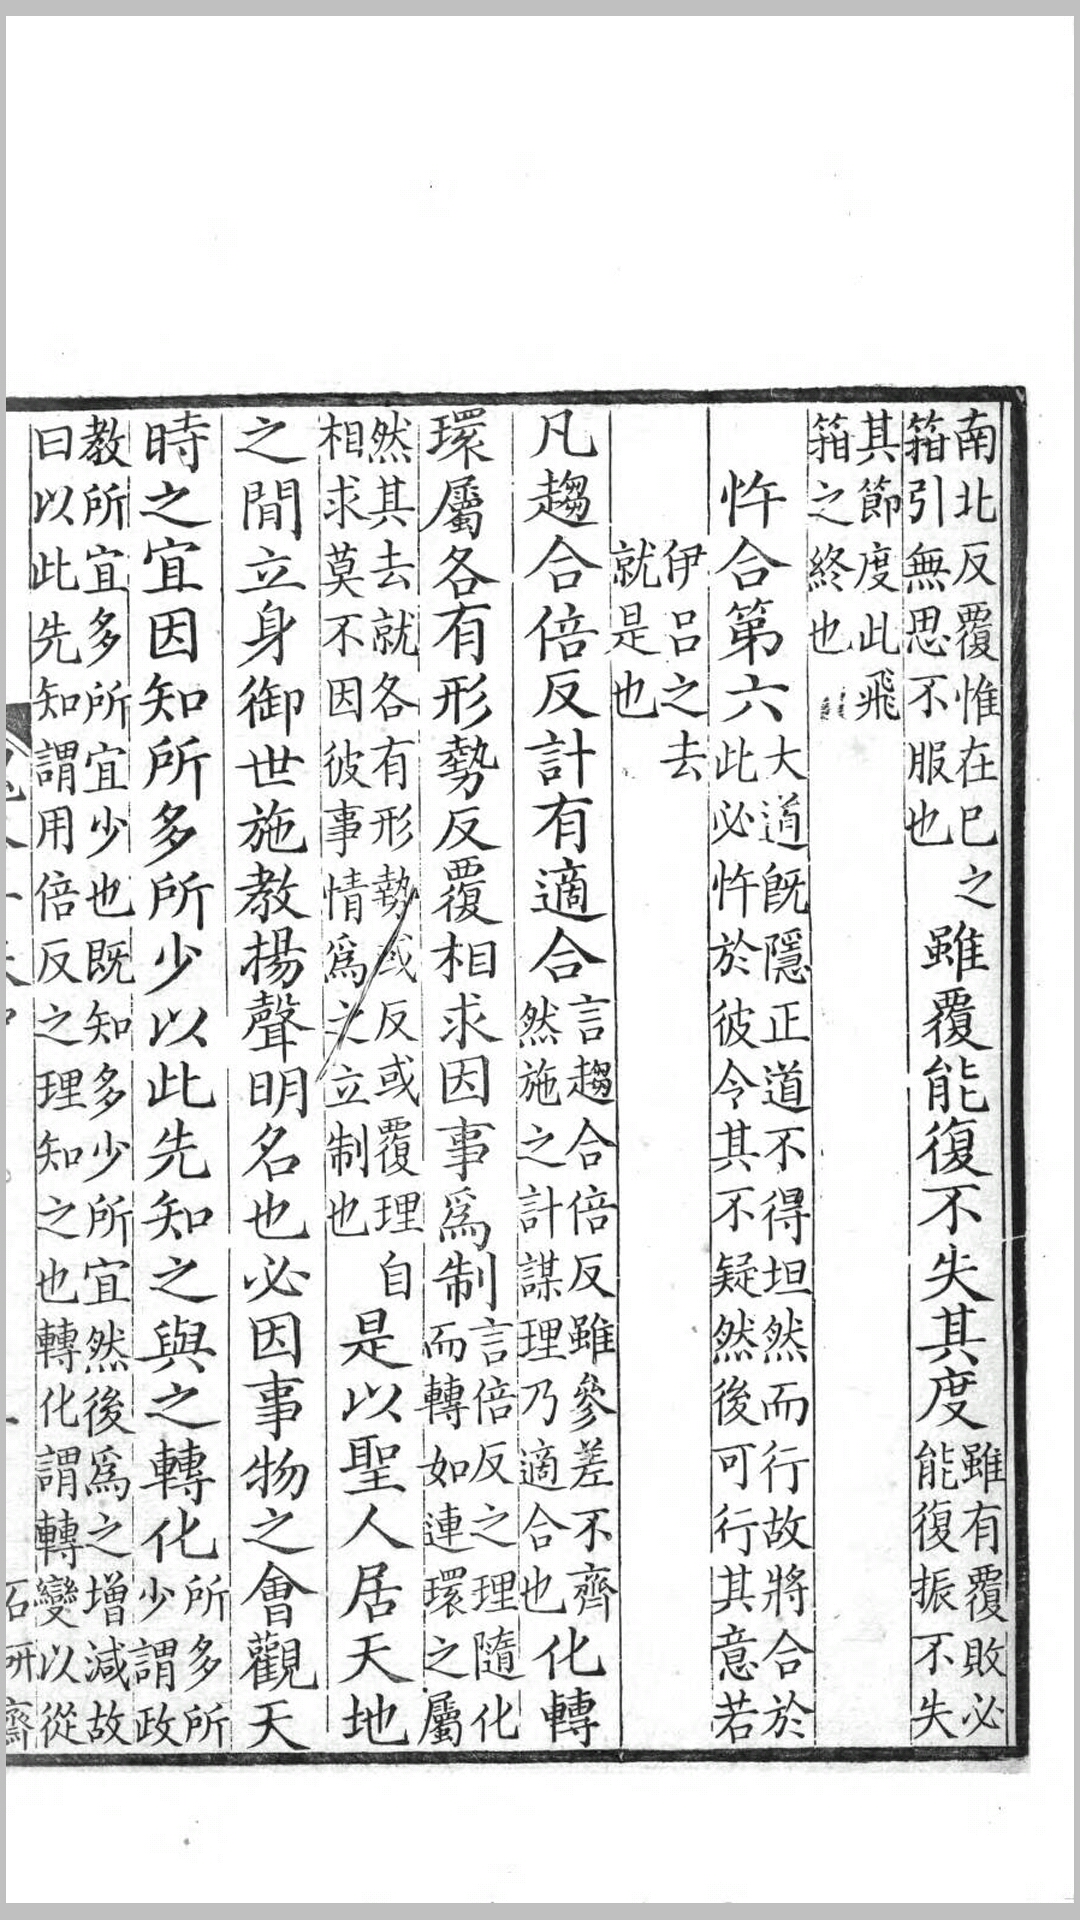 南北反覆惟在巳之箝引無思不服也雖覆能復不失其度雖有覆敗必能復振不失
其節度此飛箝之終也
忤合第六大道既隱正道不得坦然而行故將合於此必忤於彼令其不疑然後可行其意若
伊呂之去就是也
凡趨合倍反計有適合言趨合倍反雖參差不齊然施之計謀理乃適合也化轉
環屬各有形勢反覆相求因事爲制言倍反之理隨化而轉如連環之屬
然其去就各有形勢或反或覆理自相求莫不因彼事情爲之立制也是以聖人居天地
之閒立身御世施教揚聲明名也必因事物之會觀天
時之宜因知所多所少以此先知之與之轉化所多所少謂政
教所宜多所宜少也既知多少所宜然後爲之增減故曰以此先知謂用倍反之理知之也轉化謂轉變以從
石研齋